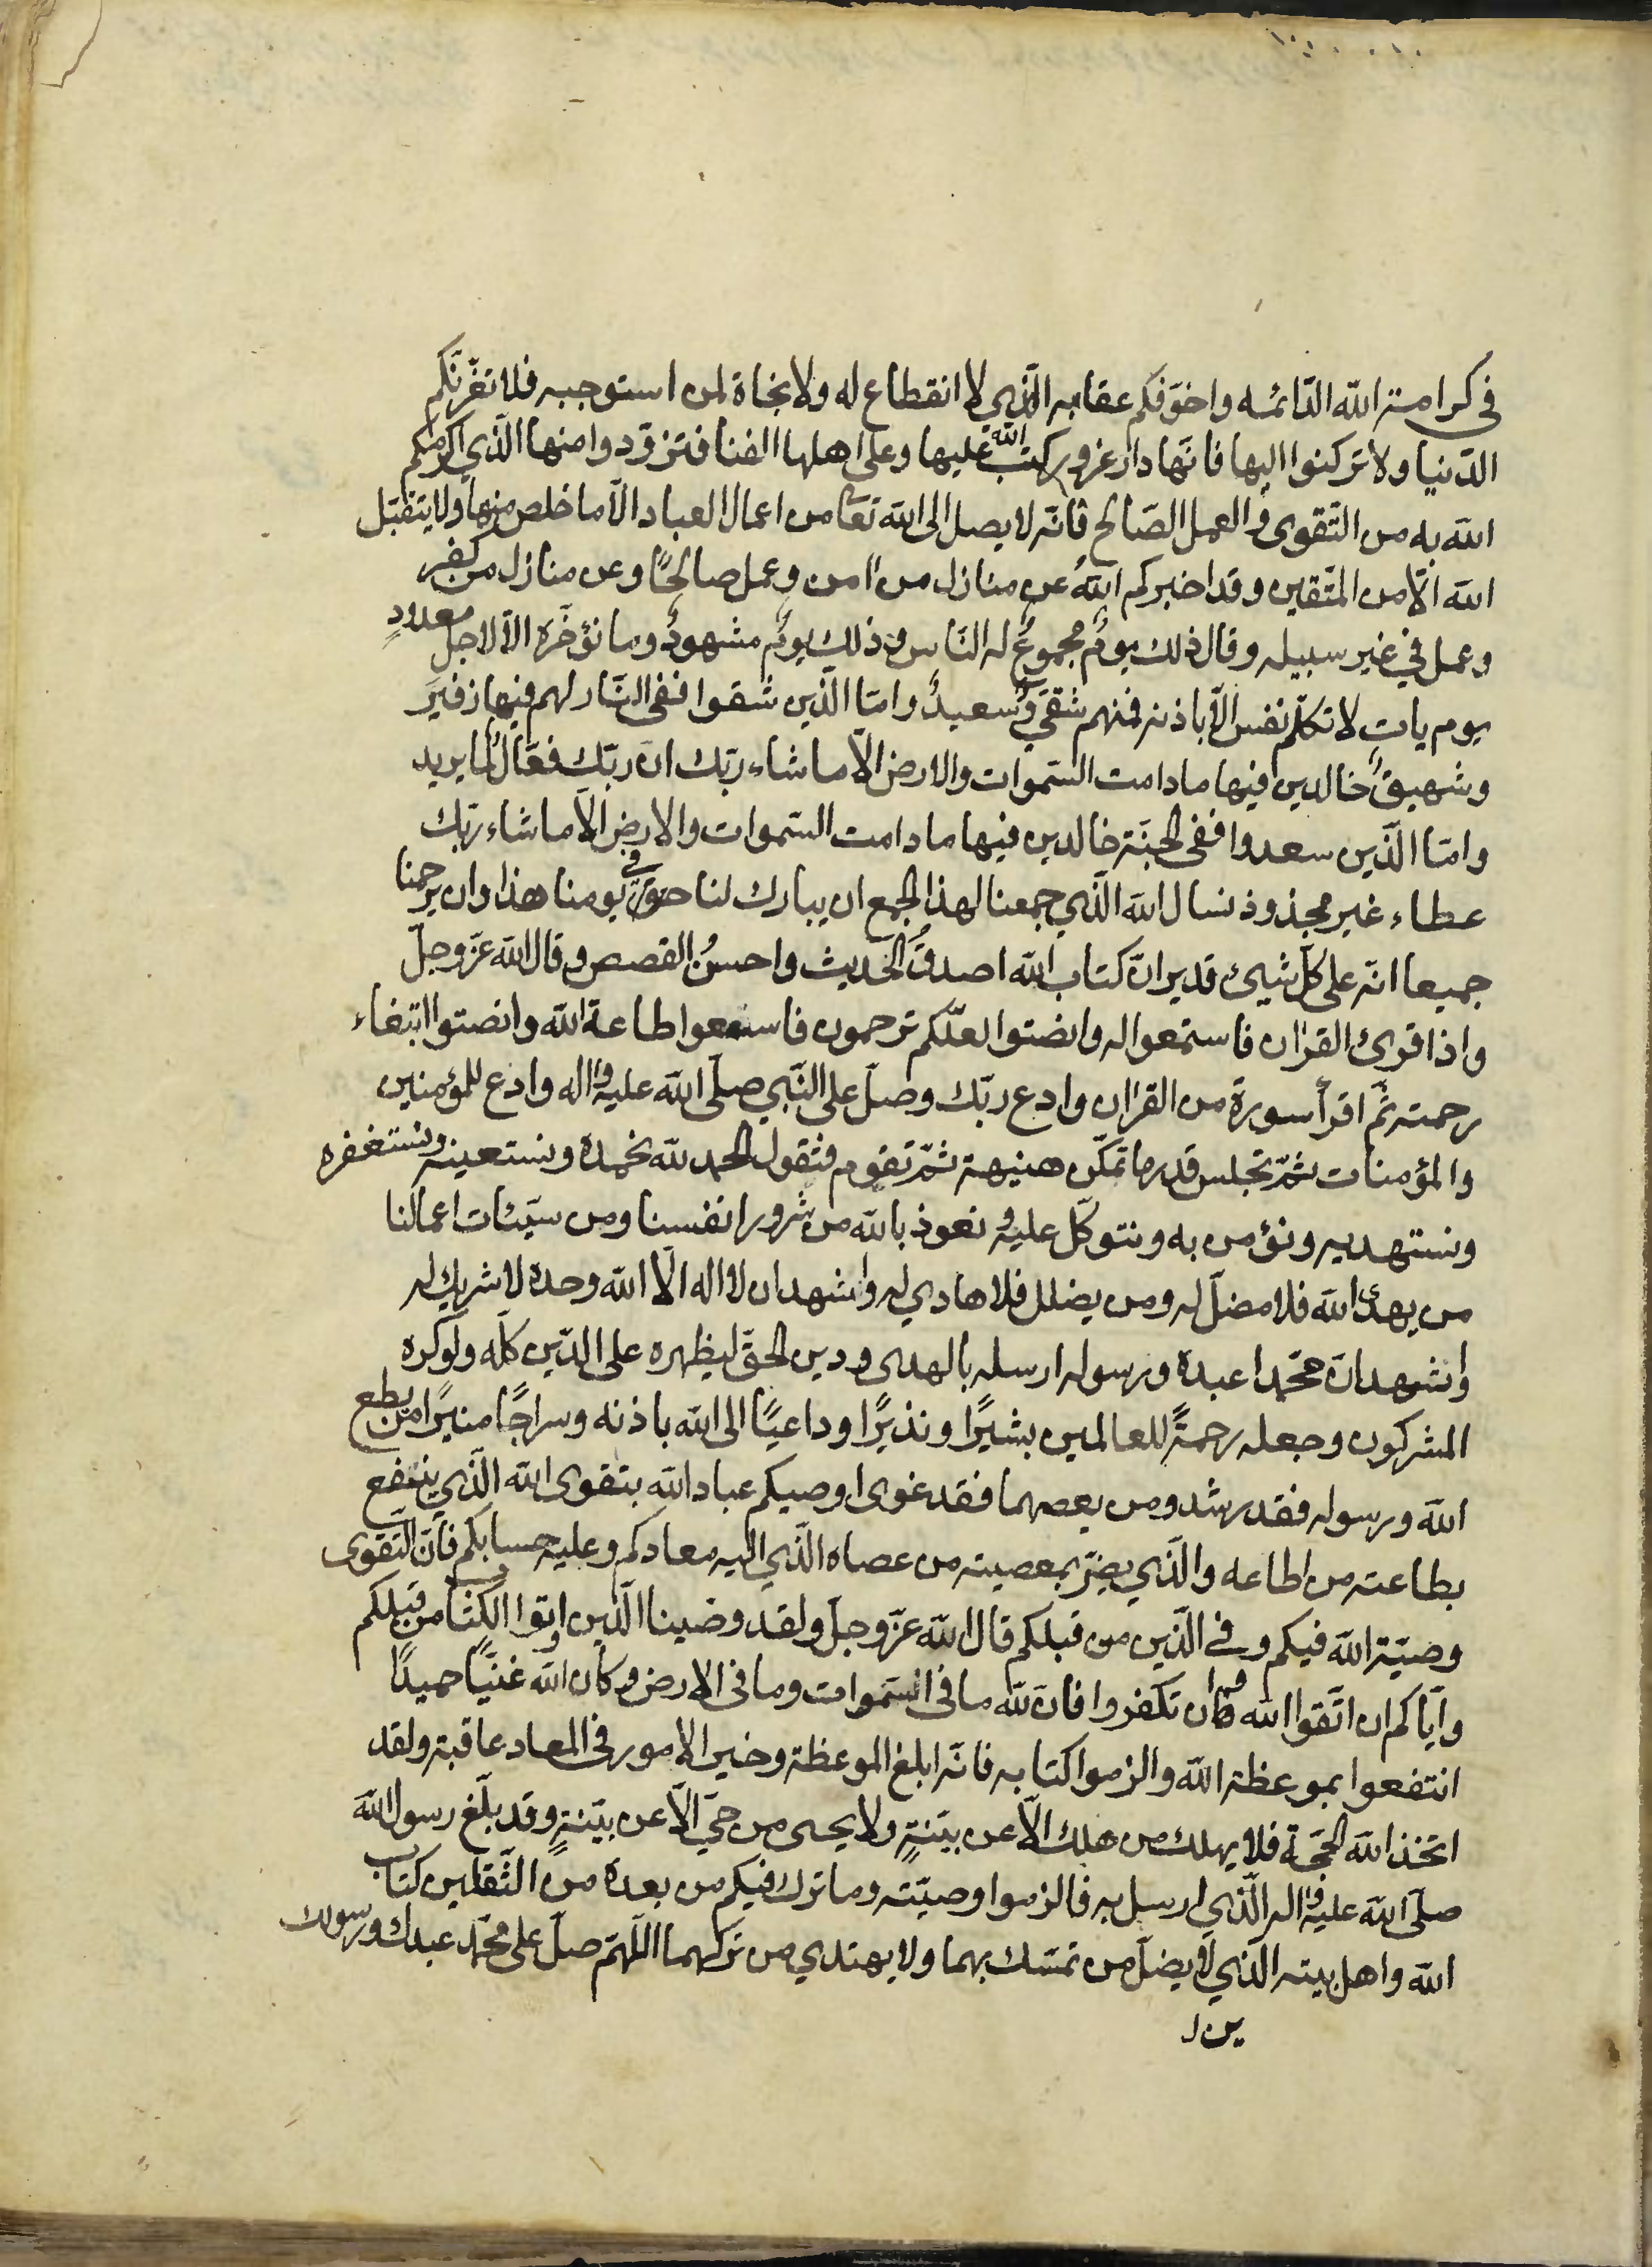 في كرامة الله الدّائمه واخوّفكم عقابه الّذي لا انقطاع له ولا نجاة لمن استوجبه فلا تغرّنّكم
الدّنيا ولا تركنوا اليها فانّها دار غرور كتب الله عليها وعلى اهلها الفنا فتزوّدوا منها الّذي اكرمكم
الله به من التّقوى والعمل الصّالح فانّه لا يصل الى الله تعا من اعمال العباد الّا ما خلص منها ولا يتقبّل
الله الّا من المتّقين وقد اخبركم الله عن منازل من امن وعمل صالحًا وعن منازل من كفر
وعمل في غير سبيله وقال ذلك يومٌ مجموعٌ له النّاس وذلك يومٌ مشهودٌ وما نؤخّره الّا لاجل معدودٍ
يوم يات لا تكلّم نفس الّا باذنه فمنهم شقيّ وسعيدٌ وامّا الّذين شقوا ففي النّار لهم فيها زفير
وشهيقٌ خالدين فيها ما دامت السّموات والارض الّا ما شاء ربّك انّ ربّك فعّالٌ لما يريد
وامّا الّذين سعدوا ففي الجنّة خالدين فيها ما دامت السّموات والارض الّا ما شاء ربّك
عطاء غير مجذوذ نسال الله الّذي جمعنا لهذا الجمع ان يبارك لنا في يومنا هذا وان يرحمنا
جميعا انّه على كلّ شيئ قدير انّ كتاب الله اصدقُ الحديث واحسنُ القصص وقال الله عزّ وجلّ
واذا قرئ القرٰان فاستمعوا له وانصتوا لعلّكم ترحمون فاسمعوا طاعة الله وانصتوا ابتغاء
رحمته ثمّ اقرأ سورة من القرٰان وادع ربّك وصلّ على النّبي صلّى الله عليه واله وادع للمؤمنين
والمؤمنات ثمّ تجلس قدر ما تمكّن هنيهة ثمّ تقوم فتقول الحمد لله نحمده ونستعينه ونستغفره
ونستهديه ونؤمن به ونتوكّل عليه ونعوذ بالله من شرور انفسنا ومن سيّئات اعمالنا
من يهدي الله فلا مضلّ له ومن يضلل فلا هادي له واشهد ان لا اله الّا الله وحده لا شريك له
واشهد انّ محمّدا عبده ورسوله ارسله بالهدى ودين الحقّ ليظهره على الدّين كلّه ولو كره
المشركون وجعله رحمةً للعالمين بشيرًا ونذيرًا وداعيًا الى الله باذنه وسراجًا منيرًا من يطع
الله ورسوله فقد رشد ومن يعصهما فقد غوى اوصيكم عباد الله بتقوى الله الّذي ينفع
بطاعته من اطاعه والّذي يضرّ بمعصيته من عصاه الّذي اليه معادكم وعليه حسابكم فانّ التّقوى
وصيّة الله فيكم وفي الّذين من قبلكم قال الله عزّ وجلّ ولقد وصّينا الّذين اوتوا الكتاب من قبلكم
وايّاكم ان اتّقوا الله وان تكفروا فانّ لله ما في السّموات وما في الارض وكان الله غنيًّا حميدًا
انتفعوا بموعظة الله والزموا كتابه فانّه ابلغ الموعظة وخير الامور في المعاد عاقبة ولقد
اتّخذ الله الحجّة فلا يهلك من هلك الّا عن بيّنةٍ ولا يحيى من حيّ الّا عن بيّنةٍ وقد بلّغ رسول الله
صلّى الله عليه واله الّذي ارسل به فالزموا وصيّته وما ترك فيكم من بعده من الثّقلين كتاب
الله واهل بيته الّذي لا يضلّ من تمسّك بهما ولا يهتدي من تركهما اللّهمّ صلّ على محمّد عبدك ورسولك